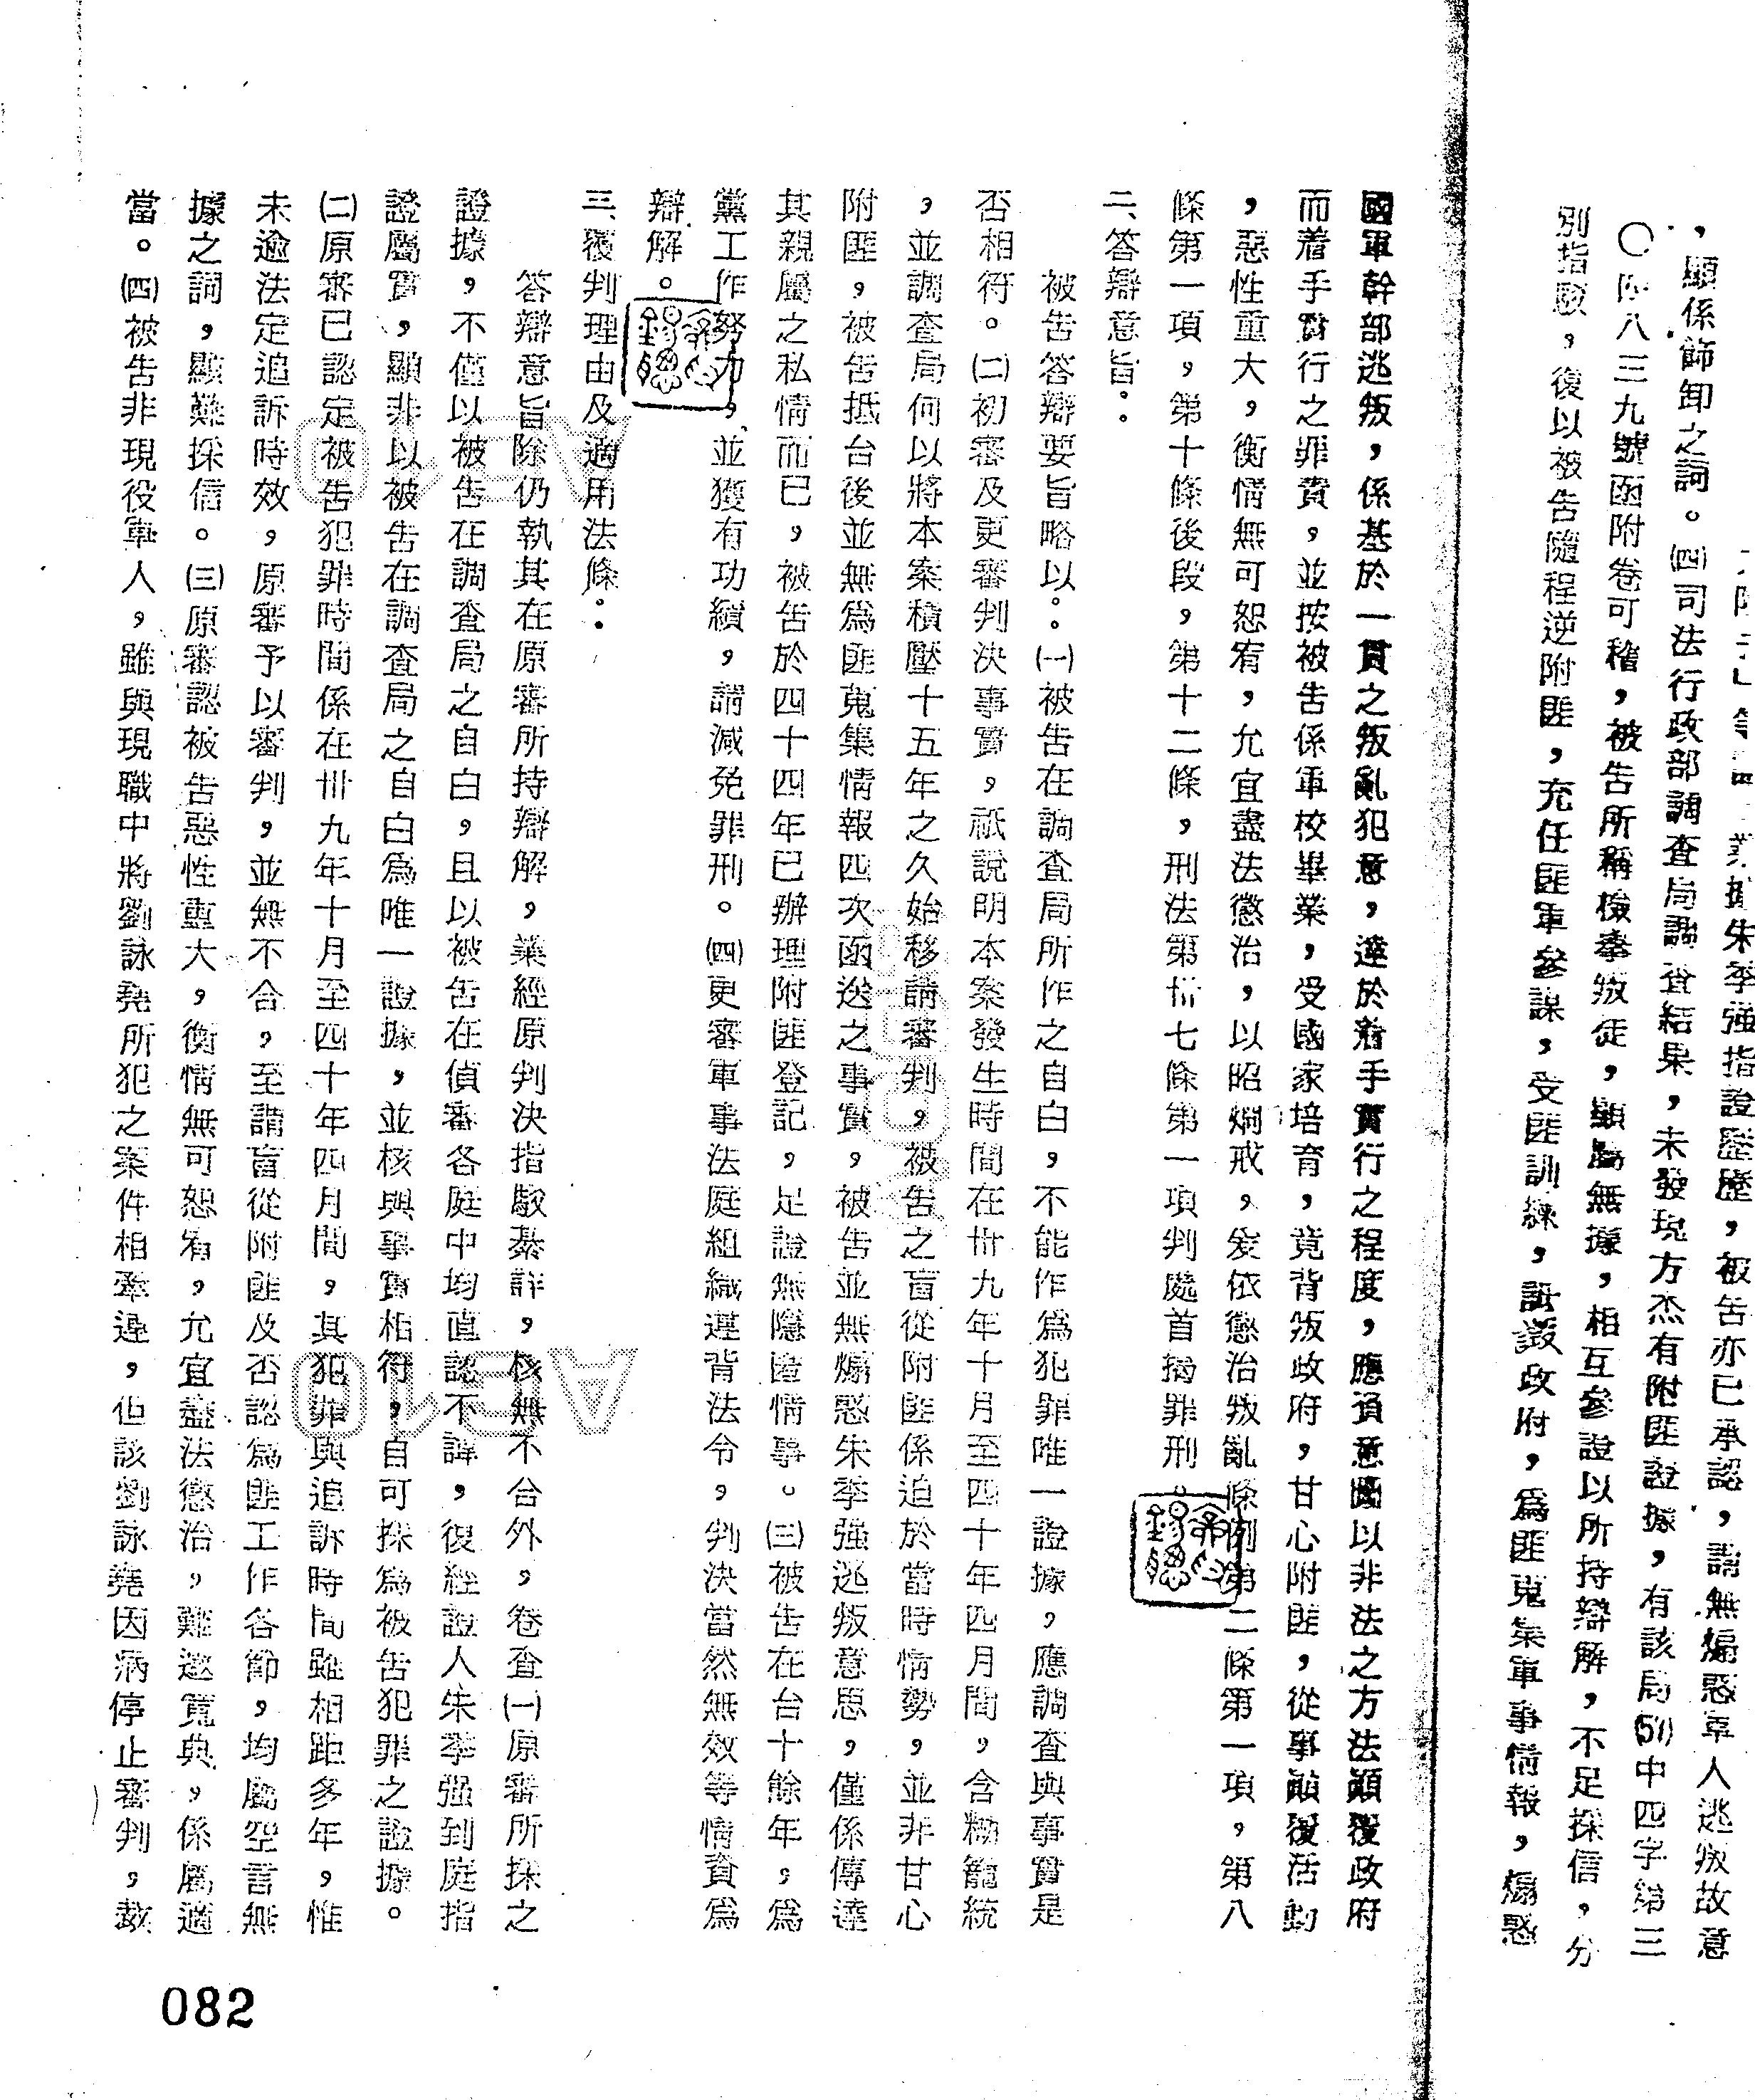 業據朱季强指證歷歷，被告亦已承認，謂無煽惑軍人逃叛故意
，顯係飾卸之詞。㈣司法行政部調查局調查結果，未發現方杰有附匪證據，有該局(51)中四字第三
〇八三九號函附卷可稽，被告所稱檢舉叛徒，顯屬無據，相互參證以所持辯解，不足採信，分
別指駁，復以被告隨程逆附匪，充任匪軍參謀，受匪訓練，詆譭政府，爲匪蒐集軍事情報，煽惑
國軍幹部逃叛，係基於一貫之叛亂犯意，達於着手實行之程度，應負意圖以非法之方法顛覆政府
而着手實行之罪責，並按被告係軍校畢業，受國家培育，竟背叛政府，甘心附匪，從事顛覆活動
，惡性重大，衡情無可恕宥，允宜盡法懲治，以昭炯戒，爰依懲治叛亂條例第二條第一項，第八
條第一項，第十條後段，第十二條，刑法第卅七條第一項判處首揭罪刑。
二、答辯意旨：
被告答辯要旨略以：㈠被告在調查局所作之自白，不能作爲犯罪唯一證據，應調查與事實是
否相符。㈡初審及更審判決事實，祇說明本案發生時間在卅九年十月至四十年四月間，含糊籠統
，並調查局何以將本案積壓十五年之久始移請審判，被告之盲從附匪係迫於當時情勢，並非甘心
附匪，被告抵台後並無爲匪蒐集情報四次函送之事實，被告並無煽惑朱季强逃叛意思，僅係傳達
其親屬之私情而已，被告於四十四年已辦理附匪登記，足證無隱匿情事。㈢被告在台十餘年，爲
黨工作努力，並獲有功績，請減免罪刑。㈣更審軍事法庭組織違背法令，判決當然無效等情資爲
辯解。
三、覆判理由及適用法條：
答辯意旨除仍執其在原審所持辯解，業經原判決指駁綦詳，核無不合外，卷查㈠原審所採之
證據，不僅以被告在調查局之自白，且以被告在偵審各庭中均直認不諱，復經證人朱季强到庭指
證屬實，顯非以被告在調查局之自白爲唯一證據，並核與事實相符，自可採爲被告犯罪之證據。
㈡原審已認定被告犯罪時間係在卅九年十月至四十年四月間，其犯罪與追訴時間雖相距多年，惟
未逾法定追訴時效，原審予以審判，並無不合，至謂盲從附匪及否認爲匪工作各節，均屬空言無
據之詞，顯難採信。㈢原審認被告惡性重大，衡情無可恕宥，允宜盡法懲治，難邀寬典，係屬適
當。㈣被告非現役軍人，雖與現職中將劉詠堯所犯之案件相牽連，但該劉詠堯因病停止審判，裁
082